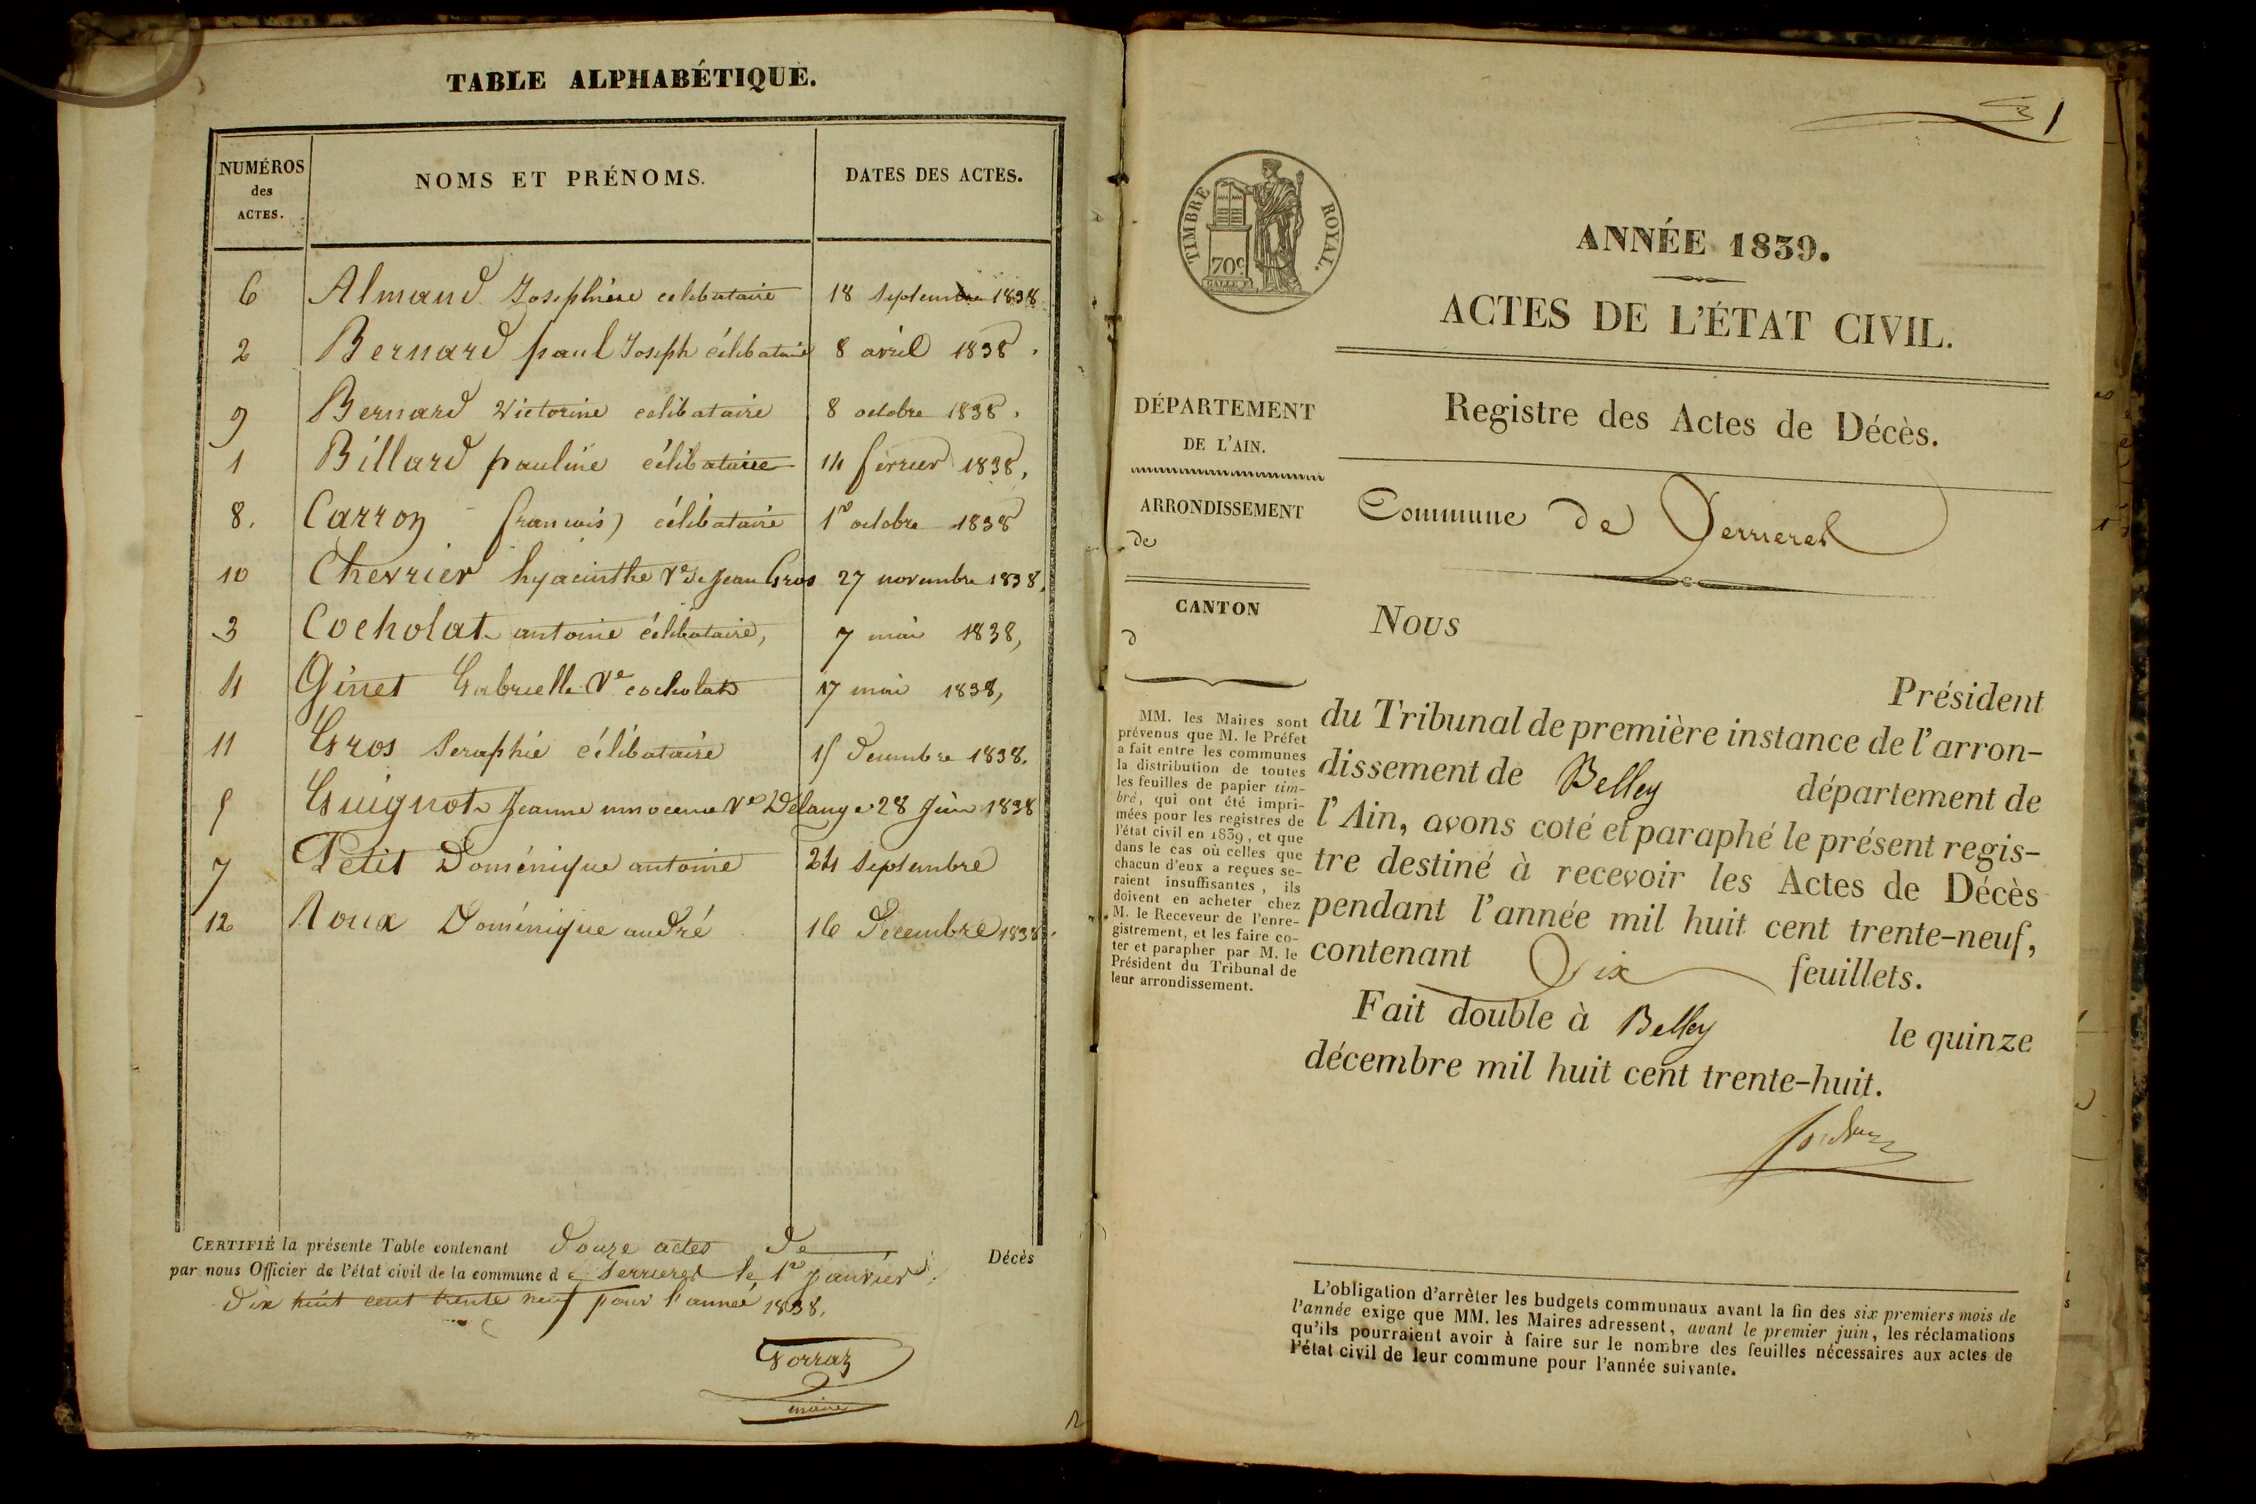 TABLE ALPHABÉTIQUE.
NUMÉROS des ACTES. NOMS ET PRÉNOMS. DATES DES ACTES.
6 Almand Josephine celibataire 18 septembre 1838
2 Bernard paul Joseph célibataire 8 avril 1838.
9 Bernard Victorine celibataire 8 octobre 1838.
1 Billard pauline célibataire 14 fevrier 1838,
8. Carron francois célibataire 1er octobre 1838
10 Chevrier hyacinthe Ve de Jean Gros 27 novembre 1838,
3 Cocholat antoine célibataire, 7 mai 1838,
4 Ginet Gabrielle Ve cocholat 17 mai 1838,
11 Gros Seraphie célibataire 15 decembre 1838.
5 Guignot Jeanne innocence Ve Délange 28 Juin 1838
7 Petit Doménique antoine 24 septembre
12 Roux Doménique andré 16 Decembre 1838.
CERTIFIÉ la présente Table contenant douze actes de Décès
par nous Officier de l'état civil de la commune de Serrieres le 1er janvier
dix huit cent trente neuf pour l'anneé 1838.
maire
1
TIMBRE ROYAL.
70c
ANNÉE 1839.
ACTES DE L'ÉTAT CIVIL.
DÉPARTEMENT
DE L'AIN.
ARRONDISSEMENT
de
CANTON
d
MM. les Maires sont
prévenus que M. le Préfet
a fait entre les communes
la distribution de toutes
les feuilles de papier tim-
bré, qui ont été impri-
mées pour les registres de
l'état civil en 1839, et que
dans le cas où celles que
chacun d'eux a reçues se-
raient insuffisantes, ils
doivent en acheter chez
M. le Receveur de l'enre-
gistrement, et les faire co-
ter et parapher par M. le
Président du Tribunal de
leur arrondissement.
Registre des Actes de Décès.
Commune de Serrieres
Nous
Président
du Tribunal de première instance de l'arron-
dissement de Belley département de
l'Ain, avons coté et paraphé le présent regis-
tre destiné à recevoir les Actes de Décès
pendant l'année mil huit cent trente-neuf,
contenant Six feuillets.
Fait double à Belley le quinze
décembre mil huit cent trente-huit.
L'obligation d'arrêter les budgets communaux avant la fin des six premiers mois de
l'année exige que MM. les Maires adressent, avant le premier juin, les réclamations
qu'ils pourraient avoir à faire sur le nombre des feuilles nécessaires aux actes de
l'état civil de leur commune pour l'année suivante.